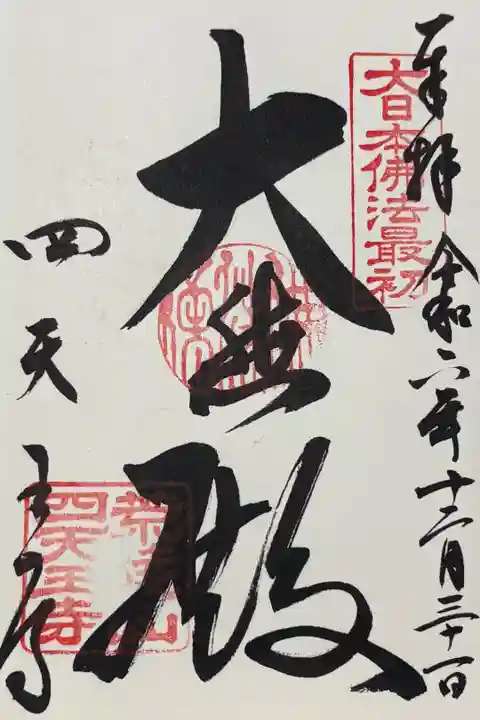 奉拝 令和六年十二月三十一日
大日本佛法最初
大悲殿
四天王寺
荒陵山
四天王寺